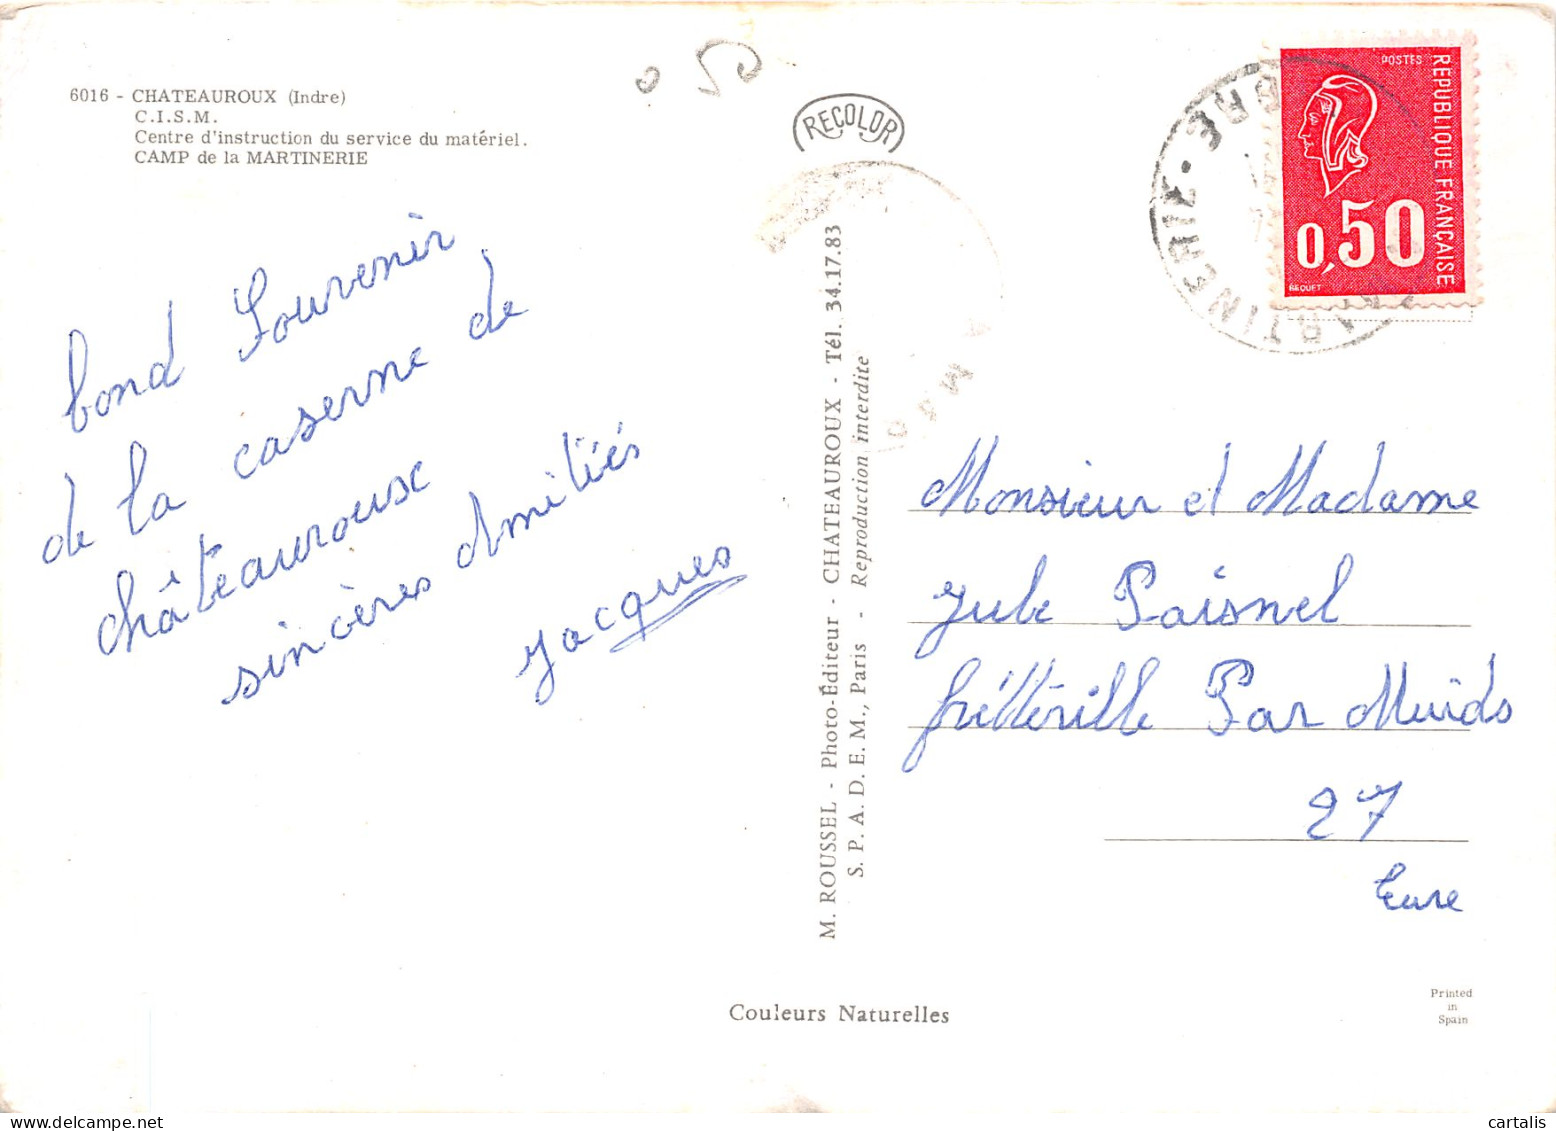 6016 - CHATEAUROUX (Indre)
C.I.S.M.
Centre d'instruction du service du matériel.
CAMP de la MARTINERIE
50
RECOLOR
POSTES
REPUBLIQUE FRANÇAISE
0,50
BEQUET
MARTINERIE
bond Souvenir
de la caserne de
châteaurouse
sincères Amitiés
Jacques
M. ROUSSEL - Photo-Éditeur - CHATEAUROUX - Tél. 34.17.83
S. P. A. D. E. M., Paris - Reproduction interdite
Monsieur et Madame
Jube Paisnel
Par Muids
27
Eure
Couleurs Naturelles
Printed
in
Spain
cartalis